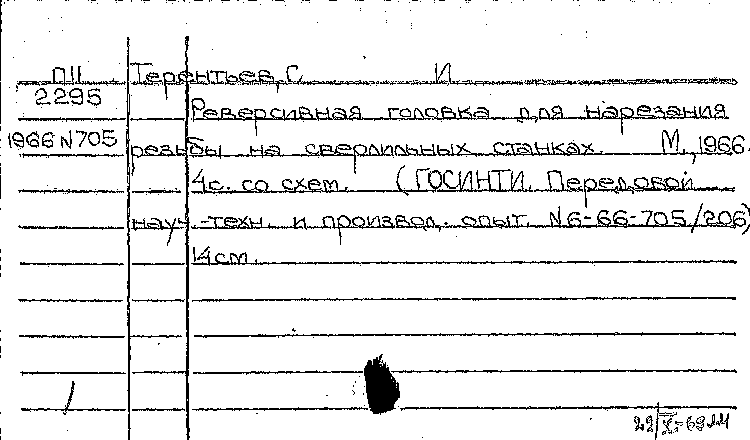 П11 Терентьев, С И
2295
Реверсивная головка для нарезания
1966 N705 резьбы на сверлильных станках. М., 1966.
4с. со схем. (ГОСИНТИ. Передовой
науч.-техн. и производ. опыт. N6-66-705/206)
14см.